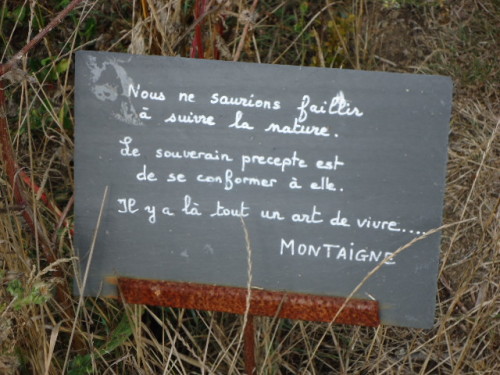 Nous ne saurions faillir
à suivre la nature.
Le souverain precepte est
de se conformer à elle.
Il y a là tout un art de vivre....
MONTAIGNE